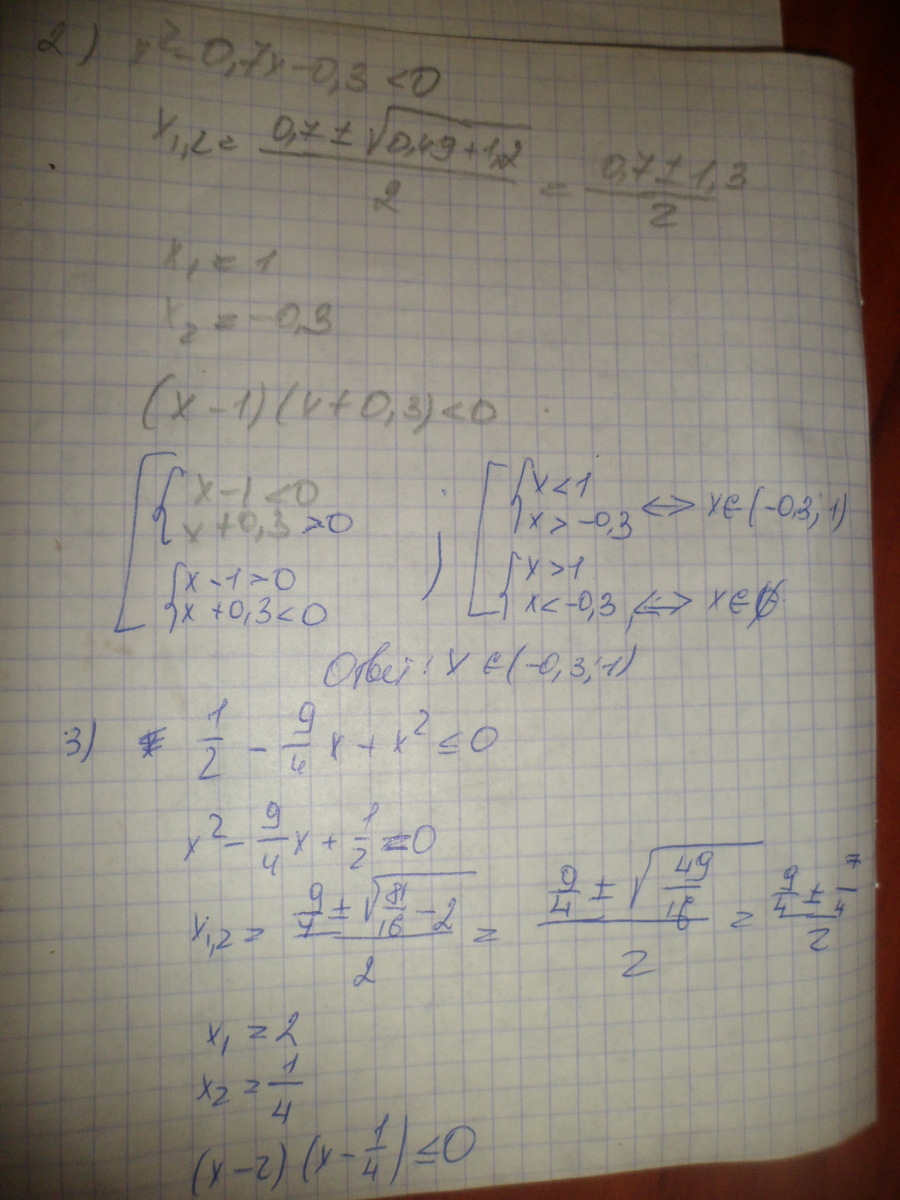 2) x² - 0,7x - 0,3 < 0
x₁,₂ = (0,7 ± √(0,49 + 1,2)) / 2 = (0,7 ± 1,3) / 2
x₁ = 1
x₂ = -0,3
(x - 1)(x + 0,3) < 0
[ { x - 1 < 0 ; [ { x < 1
x + 0,3 > 0 x > -0,3 ⇔ x ∈ (-0,3; 1)
{ x - 1 > 0 { x > 1
x + 0,3 < 0 x < -0,3 ⇔ x ∈ ∅
Ответ: x ∈ (-0,3; 1)
3) 1/2 - 9/4 x + x² ≤ 0
x² - 9/4 x + 1/2 = 0
x₁,₂ = (9/4 ± √(81/16 - 2)) / 2 = (9/4 ± √(49/16)) / 2 = (9/4 ± 7/4) / 2
x₁ = 2
x₂ = 1/4
(x - 2)(x - 1/4) ≤ 0